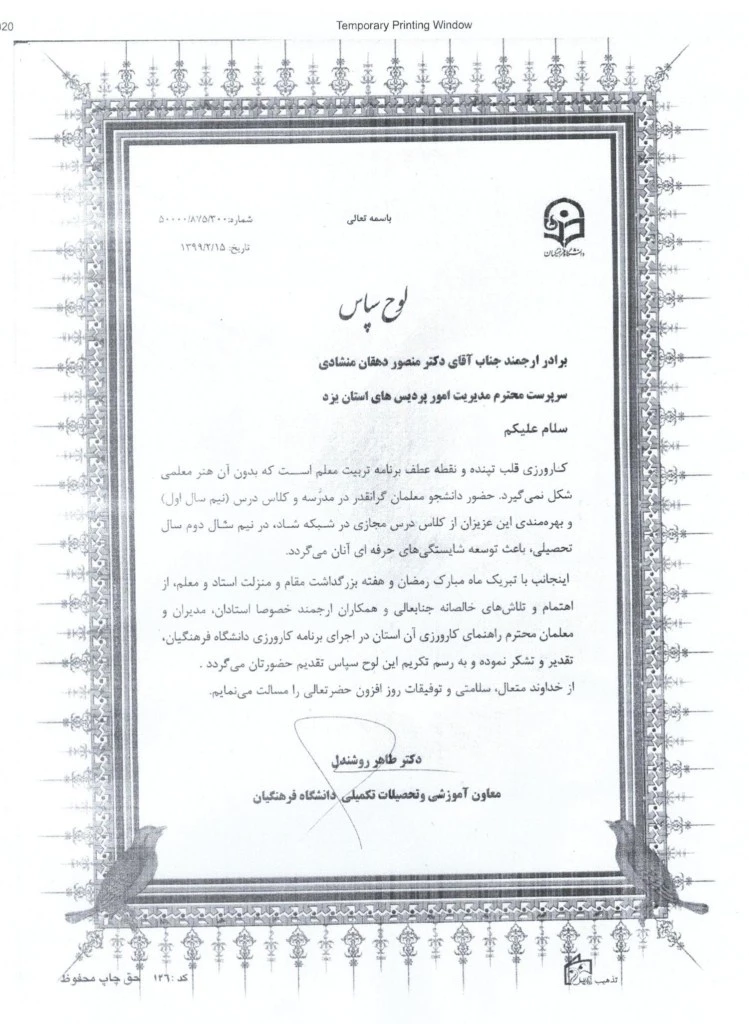 020
Temporary Printing Window
دانشگاه فرهنگیان
باسمه تعالی
شماره: ۵۰۰۰۰/۸۷۵/۳۰۰
تاریخ: ۱۳۹۹/۲/۱۵
لوح سپاس
برادر ارجمند جناب آقای دکتر منصور دهقان منشادی
سرپرست محترم مدیریت امور پردیس های استان یزد
سلام علیکم
کارورزی قلب تپنده و نقطه عطف برنامه تربیت معلم است که بدون آن هنر معلمی
شکل نمی‌گیرد. حضور دانشجو معلمان گرانقدر در مدرسه و کلاس درس (نیم سال اول)
و بهره‌مندی این عزیزان از کلاس درس مجازی در شبکه شاد، در نیم سال دوم سال
تحصیلی، باعث توسعه شایستگی‌های حرفه ای آنان می‌گردد.
اینجانب با تبریک ماه مبارک رمضان و هفته بزرگداشت مقام و منزلت استاد و معلم، از
اهتمام و تلاش‌های خالصانه جنابعالی و همکاران ارجمند خصوصا استادان، مدیران و
معلمان محترم راهنمای کارورزی آن استان در اجرای برنامه کارورزی دانشگاه فرهنگیان،
تقدیر و تشکر نموده و به رسم تکریم این لوح سپاس تقدیم حضورتان می‌گردد .
از خداوند متعال، سلامتی و توفیقات روز افزون حضرتعالی را مسالت می‌نمایم.
دکتر طاهر روشندل
معاون آموزشی وتحصیلات تکمیلی دانشگاه فرهنگیان
تذهیب
کد : ۱۳۶ حق چاپ محفوظ